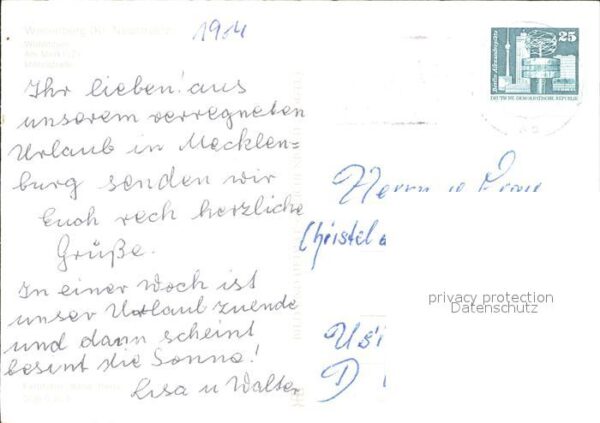 1984
Wesenberg Kr. Neustrelitz
Ihr lieben! aus
unserem verregneten
Urlaub in Mecklen=
burg senden wir
Euch rech herzliche
Grüße.
In einer Woch ist
unser Urlaub zuende
und dann scheint
besimt die Sonne!
Lisa u Walter
Berlin, Alexanderplatz
25
DEUTSCHE DEMOKRATISCHE REPUBLIK
Herrn u Frau
Christel
privacy protection
Datenschutz
D